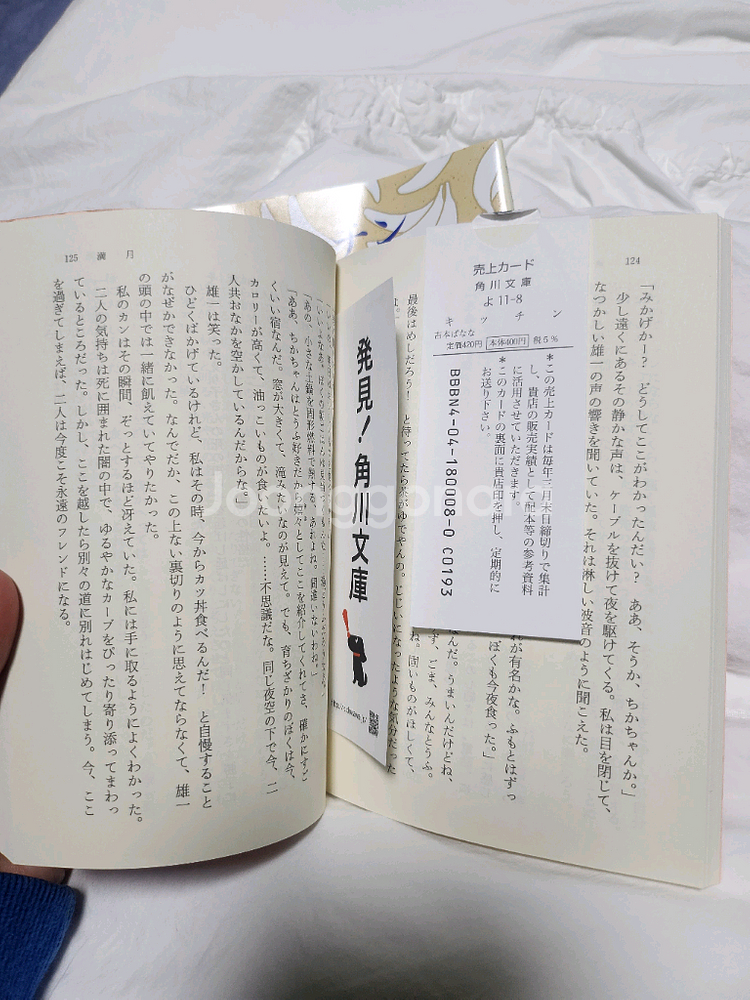 124
「みかげかー？　どうしてここがわかったんだい？　ああ、そうか、ちかちゃんか。」
少し遠くにあるその静かな声は、ケーブルを抜けて夜を駆けてくる。私は目を閉じて、
なつかしい雄一の声の響きを聞いていた。それは淋しい波音のように聞こえた。
れが有名かな。ふもとはずっ
ぼくも今夜食った。」
んだ。うまいんだけどね、
ず、ごま、みんなとうふ。
ね。固いものがほしくて、
最後はめしだろう！　と待ってたら
じじいになったような気分だった
売上カード
角川文庫
よ 11-8
キッチン
吉本ばなな
定価420円 本体400円 税5%
＊この売上カードは毎年三月末日締切りで集計
し、貴店の販売実績として配本等の参考資料
に活用させていただきます。
＊このカードの裏面に貴店印を押し、定期的に
お送り下さい。
BBBN4-04-180008-0 C0193
発見！角川文庫
125 満月
「あの、小さな土鍋を固形燃料で熱する、あれよね。間違いないわね。」
「ああ、ちかちゃんはとうふ好きだから嬉々としてここを紹介してくれてさ、確かにすご
くいい宿なんだ。窓が大きくて、滝みたいなのが見えて。でも、育ちざかりのぼくは今、
カロリーが高くて、油っこいものが食べたいよ。……不思議だな。同じ夜空の下で今、二
人共おなかを空かしているんだからな。」
雄一は笑った。
ひどくばかげているけれど、私はその時、今からカツ丼食べるんだ！　と自慢すること
がなぜかできなかった。なんでだか、この上ない裏切りのように思えてならなくて、雄一
の頭の中では一緒に飢えていてやりたかった。
私のカンはその瞬間、ぞっとするほど冴えていた。私には手に取るようによくわかった。
二人の気持ちは死に囲まれた闇の中で、ゆるやかなカーブをぴったり寄り添ってまわっ
ているところだった。しかし、ここを越したら別々の道に別れはじめてしまう。今、ここ
を過ぎてしまえば、二人は今度こそ永遠のフレンドになる。
Joonggonara